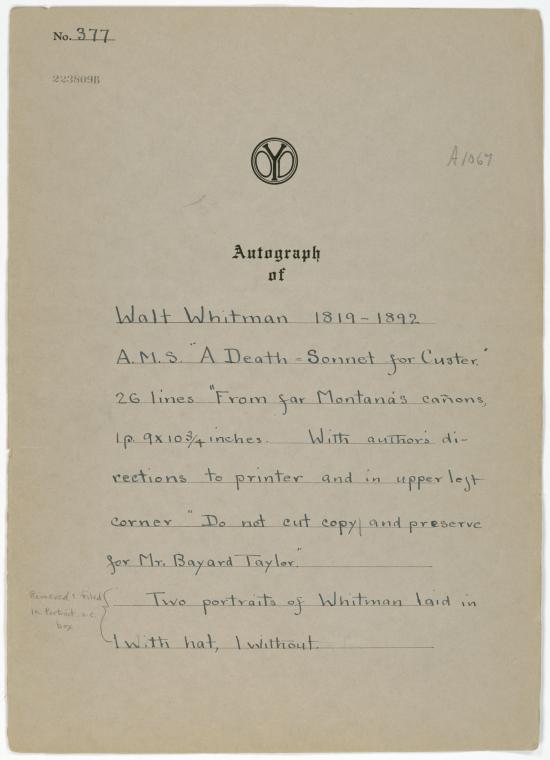 No. 377
223809B
A1067
Autograph
of
Walt Whitman 1819-1892
A.M.S. "A Death=Sonnet for Custer."
26 lines "From far Montana's cañons,
1p. 9x10 3/4 inches. With author's di-
rections to printer and in upper left
corner "Do not cut copy, and preserve
for Mr. Bayard Taylor."
Removed & filed
in Portrait
box
Two portraits of Whitman laid in
1 with hat, 1 without.